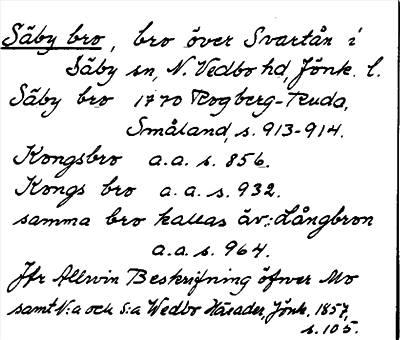 Säby bro, bro över Svartån i
Säby sn, N. Vedbo hd, Jönk. l.
Säby bro 1770 Rogberg-Ruda,
Småland, s. 913-914.
Kongsbro a.a. s. 856.
Kongs bro a.a. s. 932.
samma bro kallas äv.: Långbron
a.a. s. 964.
Jfr Allvin Beskrifning öfwer Mo
samt N:a och S:a Wedbo Härader, Jönk. 1857,
s. 105.